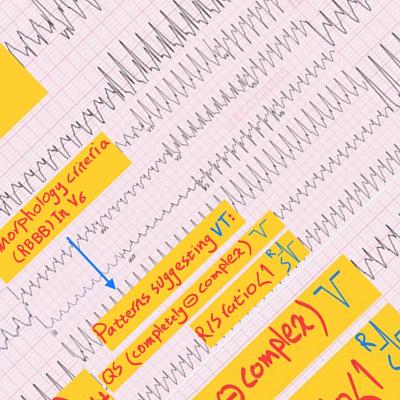 morphology criteria
(RBBB) In V6
Patterns suggesting VT:
QS (completely ⊖ complex)
R/S ratio<1 R S
⊖ complex)
o<1 R